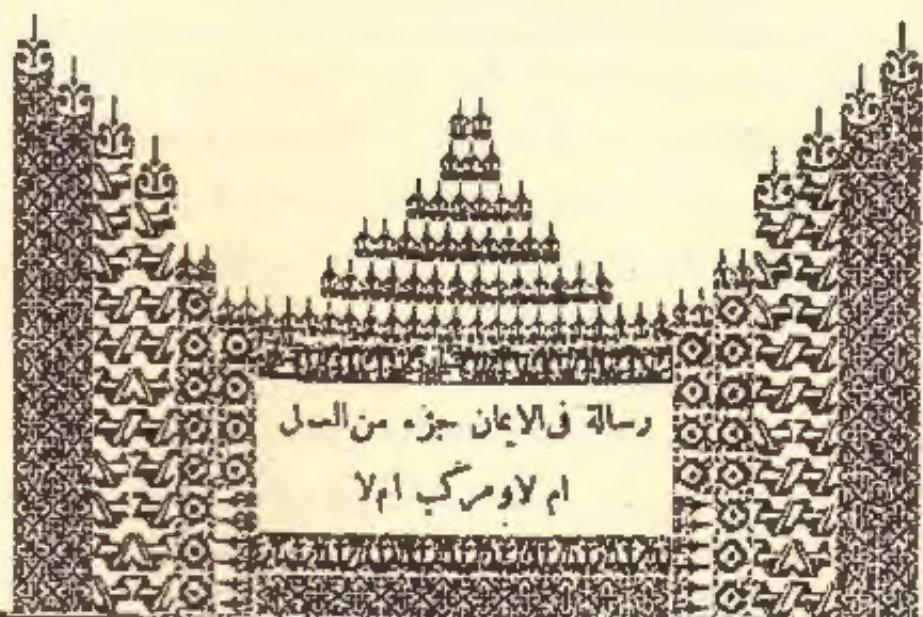 رسالة فى الايمان جزء من العمل
ام لا ومركب ام لا